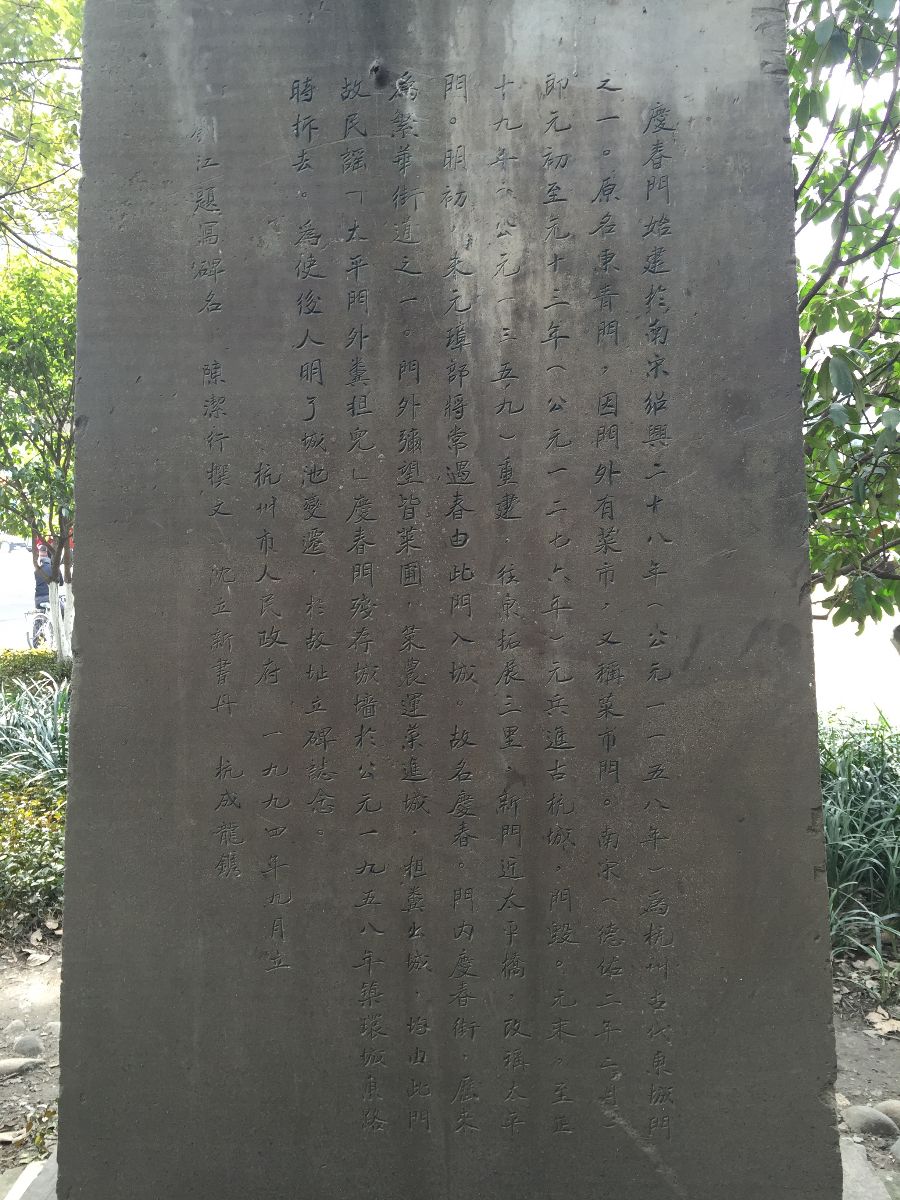 慶春門始建於南宋紹興二十八年（公元一一五八年）爲杭州古代東城門
之一。原名東青門，因門外有菜市，又稱菜市門。南宋（德佑二年二月）
即元初至元十三年（公元一二七六年）元兵進古杭城，門毀。元末，至正
十九年（公元一三五九）重建，往東拓展三里，新門近太平橋，改稱太平
門。明初，朱元璋部將常遇春由此門入城。故名慶春。門內慶春街，歷來
爲繁華街道之一。門外彌望皆菜圃，菜農運菜進城，担糞出城，均由此門
故民謠「太平門外糞担兒」慶春門殘存城墻於公元一九五八年築環城東路
時拆去。爲使後人明了城池變遷，於故址立碑誌念。
杭州市人民政府 一九九四年九月立
劉江題寫碑名 陳潔行撰文 沈立新書丹 杭成龍鐫